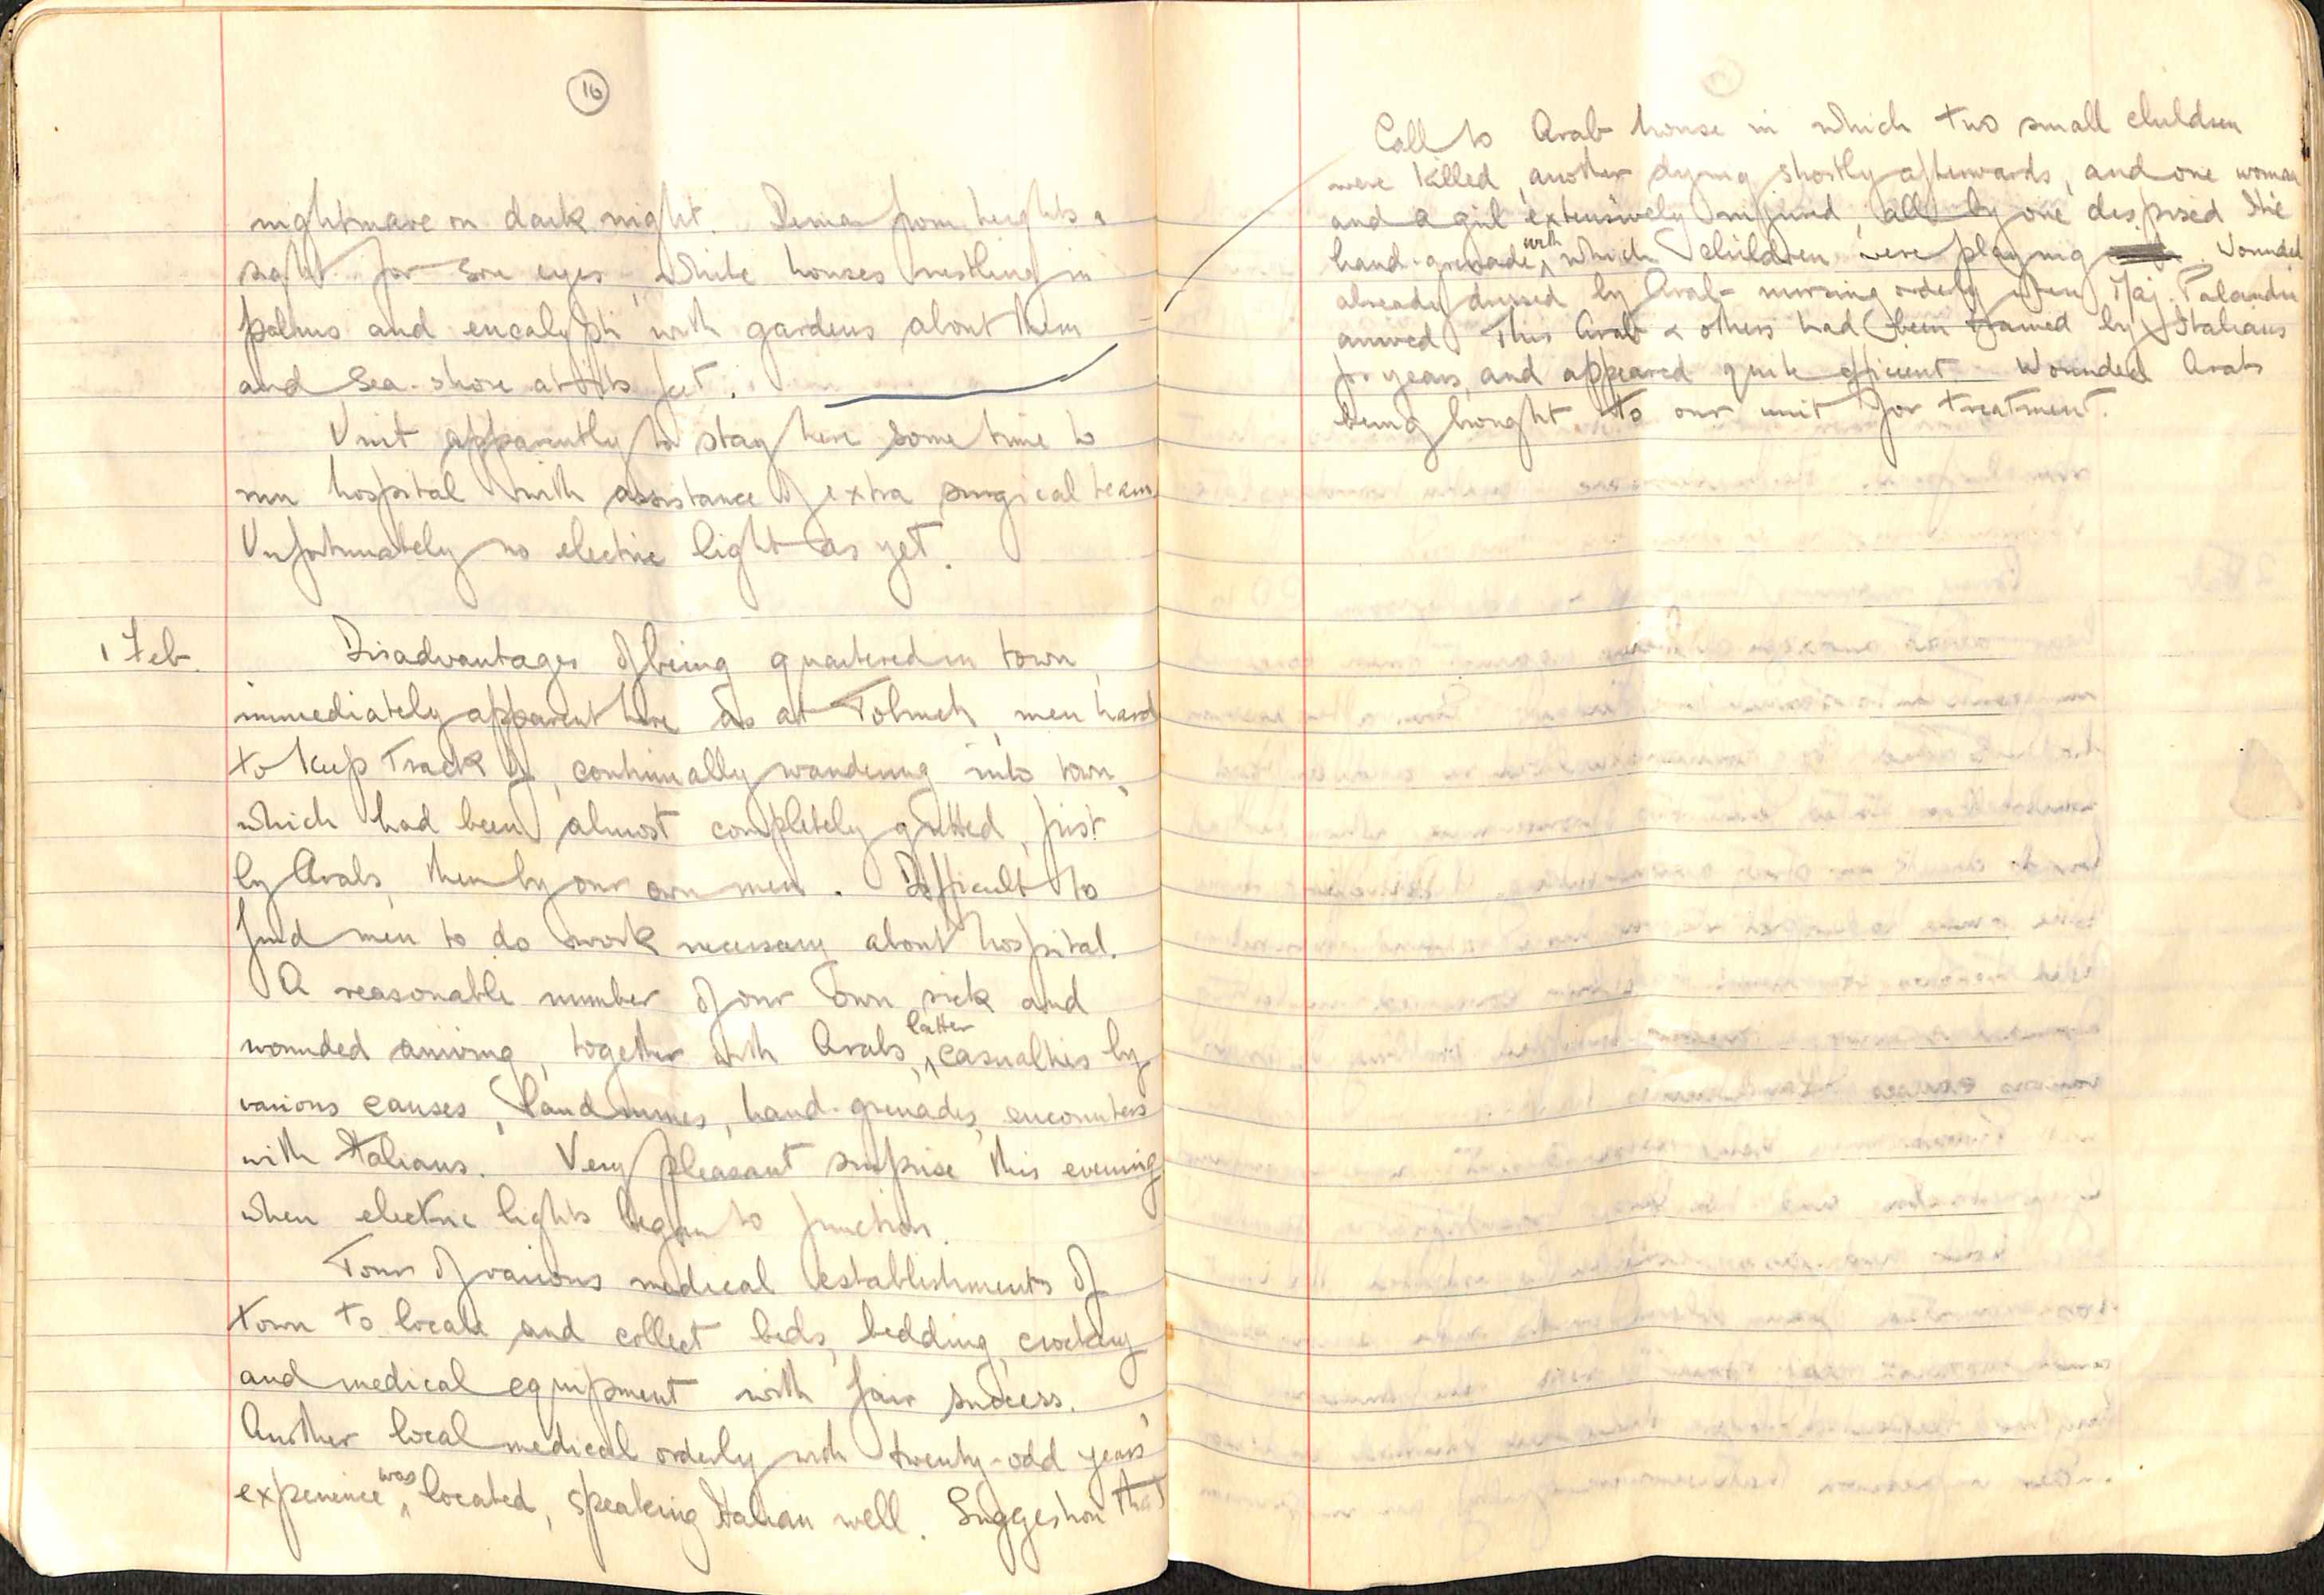 16
nightmare on dark night. Derna from heights a
sight for sore eyes, white houses nestling in
palms and eucalypti with gardens about them
and sea-shore at its feet.
Unit apparently to stay here some time to
run hospital with assistance of extra surgical team
Unfortunately no electric light as yet.
1 Feb.
Disadvantages of being quartered in town
immediately apparent here as at Tobruch, men hard
to keep track of, continually wandering into town,
which had been almost completely gutted, first
by Arabs, then by our own men. Difficult to
find men to do work necessary about hospital.
A reasonable number of our own sick and
wounded arriving, together with Arabs, latter casualties by
various causes, land mines, hand-grenades, encounters
with Italians. Very pleasant surprise this evening
when electric lights began to function.
Tour of various medical establishments of
town to locate and collect beds, bedding, crockery
and medical equipment with fair success.
Another local medical orderly with twenty-odd years'
experience was located, speaking Italian well. Suggestion that
Call to Arab house in which two small children
were killed, another dying shortly afterwards, and one woman
and a girl extensively injured, all by one
hand-grenade with which children were playing. Wounded
already dressed by Arab nursing orderly when Maj. Palandri
arrived. This Arab & others had been trained by Italians
for years, and appeared quite efficient. Wounded Arabs
being brought to our unit for treatment.